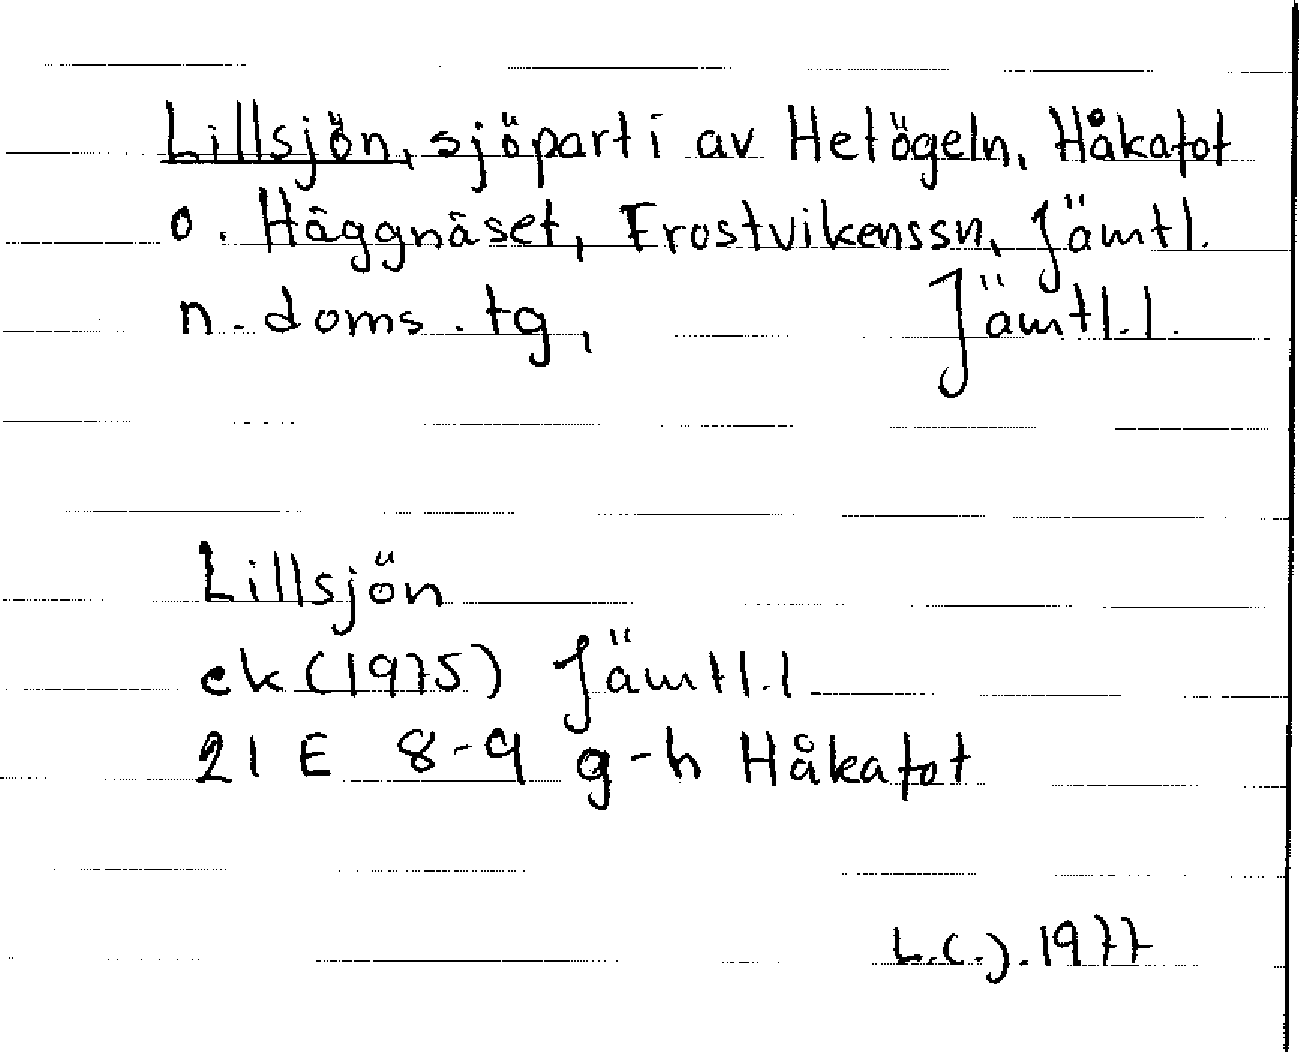 Lillsjön, sjöparti av Hetögeln, Håkafot
o. Häggnäset, Frostvikenssn, Jämtl.
n. doms. tg, Jämtl. l.
Lillsjön
ek (1975) Jämtl. l
21 E 8-9 g-h Håkafot
L.C.J. 1977